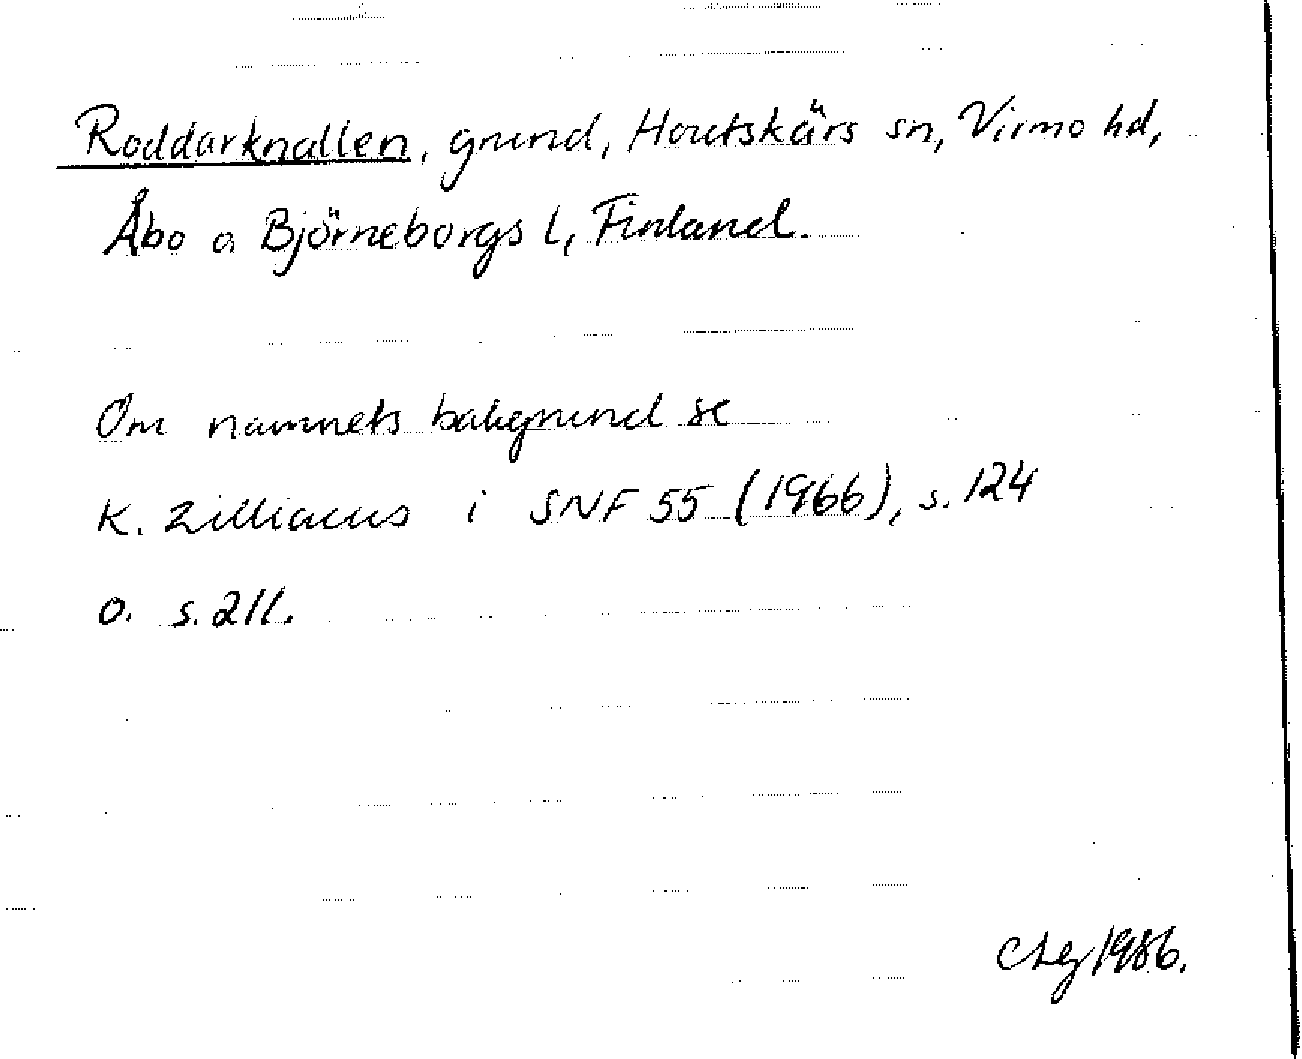 Roddarknallen, grund, Houtskärs sn, Virmo hd,
Åbo o Björneborgs l, Finland.
Om namnets bakgrund se
K. Zilliacus i SNF 55 (1966), s. 124
o. s. 211.
1986.